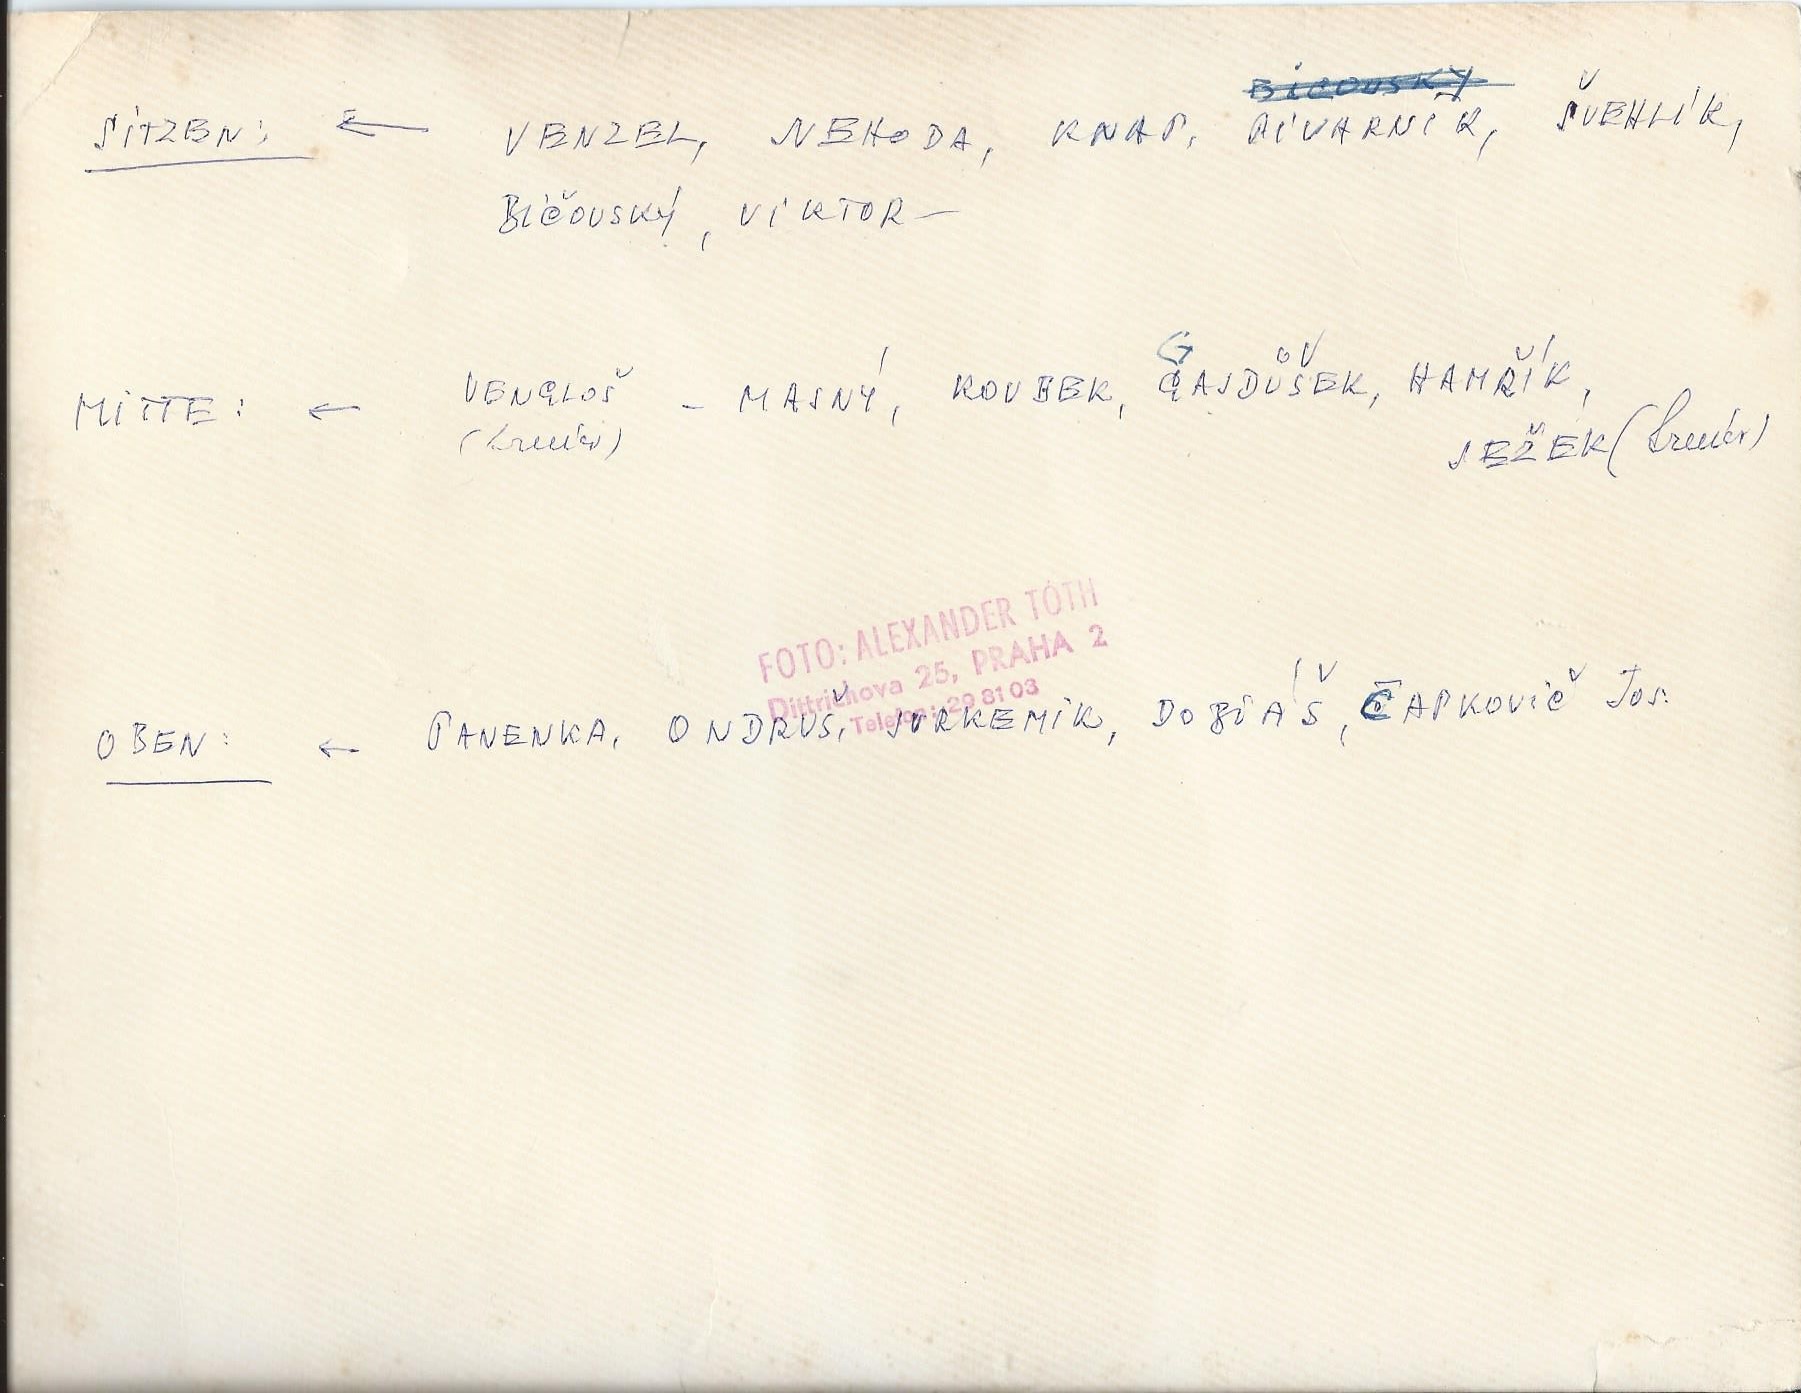 BIČOVSKÝ
SITZEN: ← VENZEL, NEHODA, KNAP, PIVARNÍK, ŠVEHLÍK,
BIČOVSKÝ, VIKTOR –
MITTE: ← VENGLOŠ – MASNÝ, KOUBEK, GAJDŮŠEK, HAMŘÍK,
(trenér) JEŽEK (trenér)
FOTO: ALEXANDER TÓTH
Dittrichova 25, PRAHA 2
Telefon: 29 81 03
OBEN: ← PANENKA, ONDRUŠ, JURKEMIK, DOBIÁŠ, ČAPKOVIČ Jos.